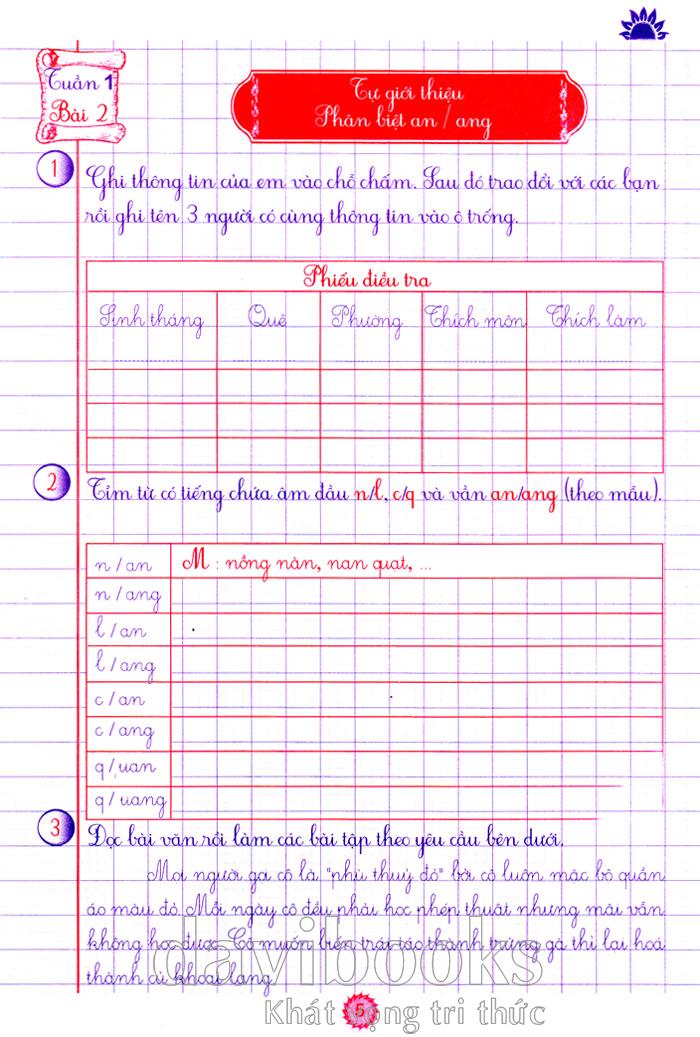 Tuần 1
Bài 2
Tự giới thiệu
Phân biệt an / ang
1
Ghi thông tin của em vào chỗ chấm. Sau đó trao đổi với các bạn
rồi ghi tên 3 người có cùng thông tin vào ô trống.
Phiếu điều tra
Sinh tháng Quê Phường Thích môn Thích làm
2
Tìm từ có tiếng chứa âm đầu n/l, c/q và vần an/ang (theo mẫu).
n / an M : nồng nàn, nan quạt, ...
n / ang
l / an
l / ang
c / an
c / ang
q / uan
q / uang
3
Đọc bài văn rồi làm các bài tập theo yêu cầu bên dưới.
Mọi người gọi cô là "phù thuỷ đỏ" bởi cô luôn mặc bộ quần
áo màu đỏ. Mỗi ngày cô đều phải học phép thuật nhưng mãi vẫn
không học được. Cô muốn biến trái táo thành trứng gà thì lại hoá
thành củ khoai lang.
davibooks
Khát vọng tri thức
5